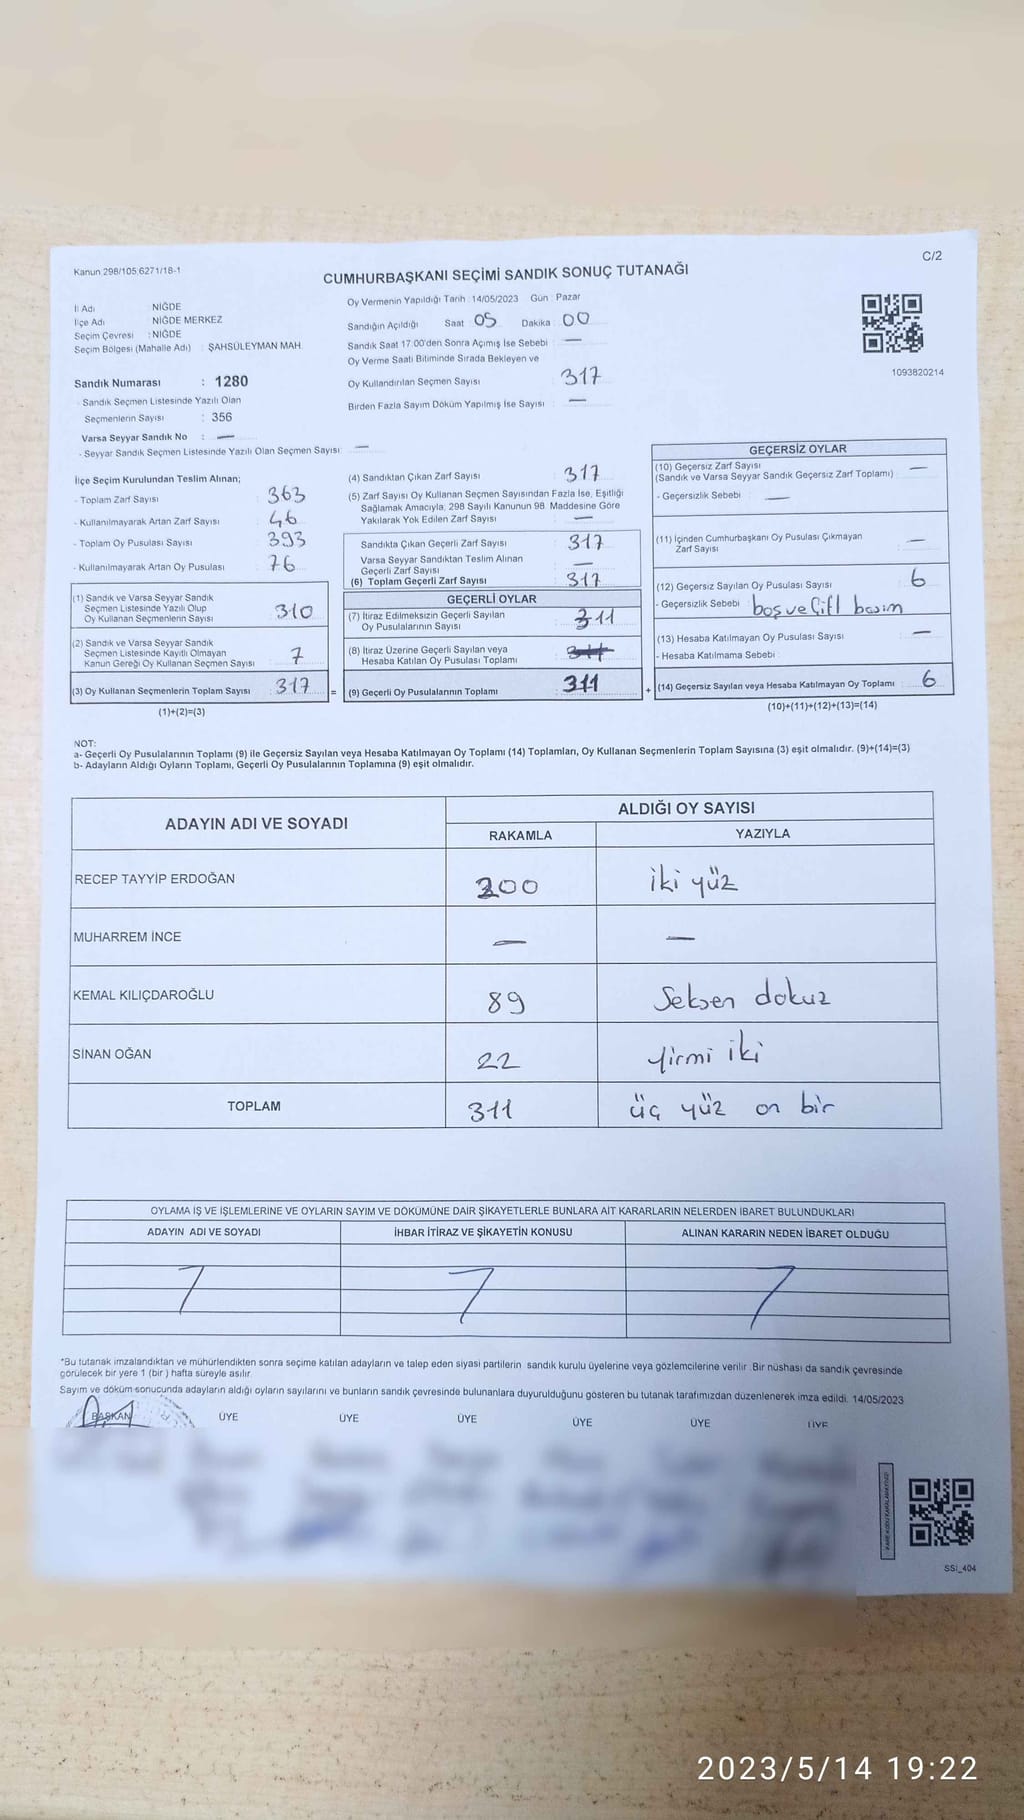 Kanun 298/105;6271/18-1
C/2
CUMHURBAŞKANI SEÇİMİ SANDIK SONUÇ TUTANAĞI
İl Adı : NİĞDE
İlçe Adı : NİĞDE MERKEZ
Seçim Çevresi : NİĞDE
Seçim Bölgesi (Mahalle Adı) : ŞAHSÜLEYMAN MAH.
Sandık Numarası : 1280
- Sandık Seçmen Listesinde Yazılı Olan
Seçmenlerin Sayısı : 356
Varsa Seyyar Sandık No : —
- Seyyar Sandık Seçmen Listesinde Yazılı Olan Seçmen Sayısı: —
Oy Vermenin Yapıldığı Tarih : 14/05/2023 Gün : Pazar
Sandığın Açıldığı Saat 05 Dakika : 00
Sandık Saat 17.00'den Sonra Açımış İse Sebebi : —
Oy Verme Saati Bitiminde Sırada Bekleyen ve
Oy Kullandırılan Seçmen Sayısı : 317
Birden Fazla Sayım Döküm Yapılmış İse Sayısı : —
1093820214
İlçe Seçim Kurulundan Teslim Alınan;
- Toplam Zarf Sayısı : 363
- Kullanılmayarak Artan Zarf Sayısı : 46
- Toplam Oy Pusulası Sayısı : 393
- Kullanılmayarak Artan Oy Pusulası : 76
(1) Sandık ve Varsa Seyyar Sandık
Seçmen Listesinde Yazılı Olup
Oy Kullanan Seçmenlerin Sayısı : 310
(2) Sandık ve Varsa Seyyar Sandık
Seçmen Listesinde Kayıtlı Olmayan
Kanun Gereği Oy Kullanan Seçmen Sayısı : 7
(3) Oy Kullanan Seçmenlerin Toplam Sayısı : 317
(1)+(2)=(3)
(4) Sandıktan Çıkan Zarf Sayısı : 317
(5) Zarf Sayısı Oy Kullanan Seçmen Sayısından Fazla İse, Eşitliği
Sağlamak Amacıyla; 298 Sayılı Kanunun 98. Maddesine Göre
Yakılarak Yok Edilen Zarf Sayısı : —
Sandıkta Çıkan Geçerli Zarf Sayısı : 317
Varsa Seyyar Sandıktan Teslim Alınan
Geçerli Zarf Sayısı : —
(6) Toplam Geçerli Zarf Sayısı : 317
GEÇERLİ OYLAR
(7) İtiraz Edilmeksizin Geçerli Sayılan
Oy Pusulalarının Sayısı : 311
(8) İtiraz Üzerine Geçerli Sayılan veya
Hesaba Katılan Oy Pusulası Toplamı
= (9) Geçerli Oy Pusulalarının Toplamı : 311 +
GEÇERSİZ OYLAR
(10) Geçersiz Zarf Sayısı
(Sandık ve Varsa Seyyar Sandık Geçersiz Zarf Toplamı) : —
- Geçersizlik Sebebi : —
(11) İçinden Cumhurbaşkanı Oy Pusulası Çıkmayan
Zarf Sayısı : —
(12) Geçersiz Sayılan Oy Pusulası Sayısı : 6
- Geçersizlik Sebebi : boş ve çift basım
(13) Hesaba Katılmayan Oy Pusulası Sayısı : —
- Hesaba Katılmama Sebebi :
(14) Geçersiz Sayılan veya Hesaba Katılmayan Oy Toplamı : 6
(10)+(11)+(12)+(13)=(14)
NOT:
a- Geçerli Oy Pusulalarının Toplamı (9) ile Geçersiz Sayılan veya Hesaba Katılmayan Oy Toplamı (14) Toplamları, Oy Kullanan Seçmenlerin Toplam Sayısına (3) eşit olmalıdır. (9)+(14)=(3)
b- Adayların Aldığı Oyların Toplamı, Geçerli Oy Pusulalarının Toplamına (9) eşit olmalıdır.
ADAYIN ADI VE SOYADI
ALDIĞI OY SAYISI
RAKAMLA YAZIYLA
RECEP TAYYİP ERDOĞAN 200 iki yüz
MUHARREM İNCE — —
KEMAL KILIÇDAROĞLU 89 Seksen dokuz
SİNAN OĞAN 22 yirmi iki
TOPLAM 311 üç yüz on bir
OYLAMA İŞ VE İŞLEMLERİNE VE OYLARIN SAYIM VE DÖKÜMÜNE DAİR ŞİKAYETLERLE BUNLARA AİT KARARLARIN NELERDEN İBARET BULUNDUKLARI
ADAYIN ADI VE SOYADI İHBAR İTİRAZ VE ŞİKAYETİN KONUSU ALINAN KARARIN NEDEN İBARET OLDUĞU
*Bu tutanak imzalandıktan ve mühürlendikten sonra seçime katılan adayların ve talep eden siyasi partilerin sandık kurulu üyelerine veya gözlemcilerine verilir. Bir nüshası da sandık çevresinde
görülecek bir yere 1 (bir) hafta süreyle asılır.
Sayım ve döküm sonucunda adayların aldığı oyların sayılarını ve bunların sandık çevresinde bulunanlara duyurulduğunu gösteren bu tutanak tarafımızdan düzenlenerek imza edildi. 14/05/2023
BAŞKAN ÜYE ÜYE ÜYE ÜYE ÜYE ÜYE
SSİ_404
2023/5/14 19:22